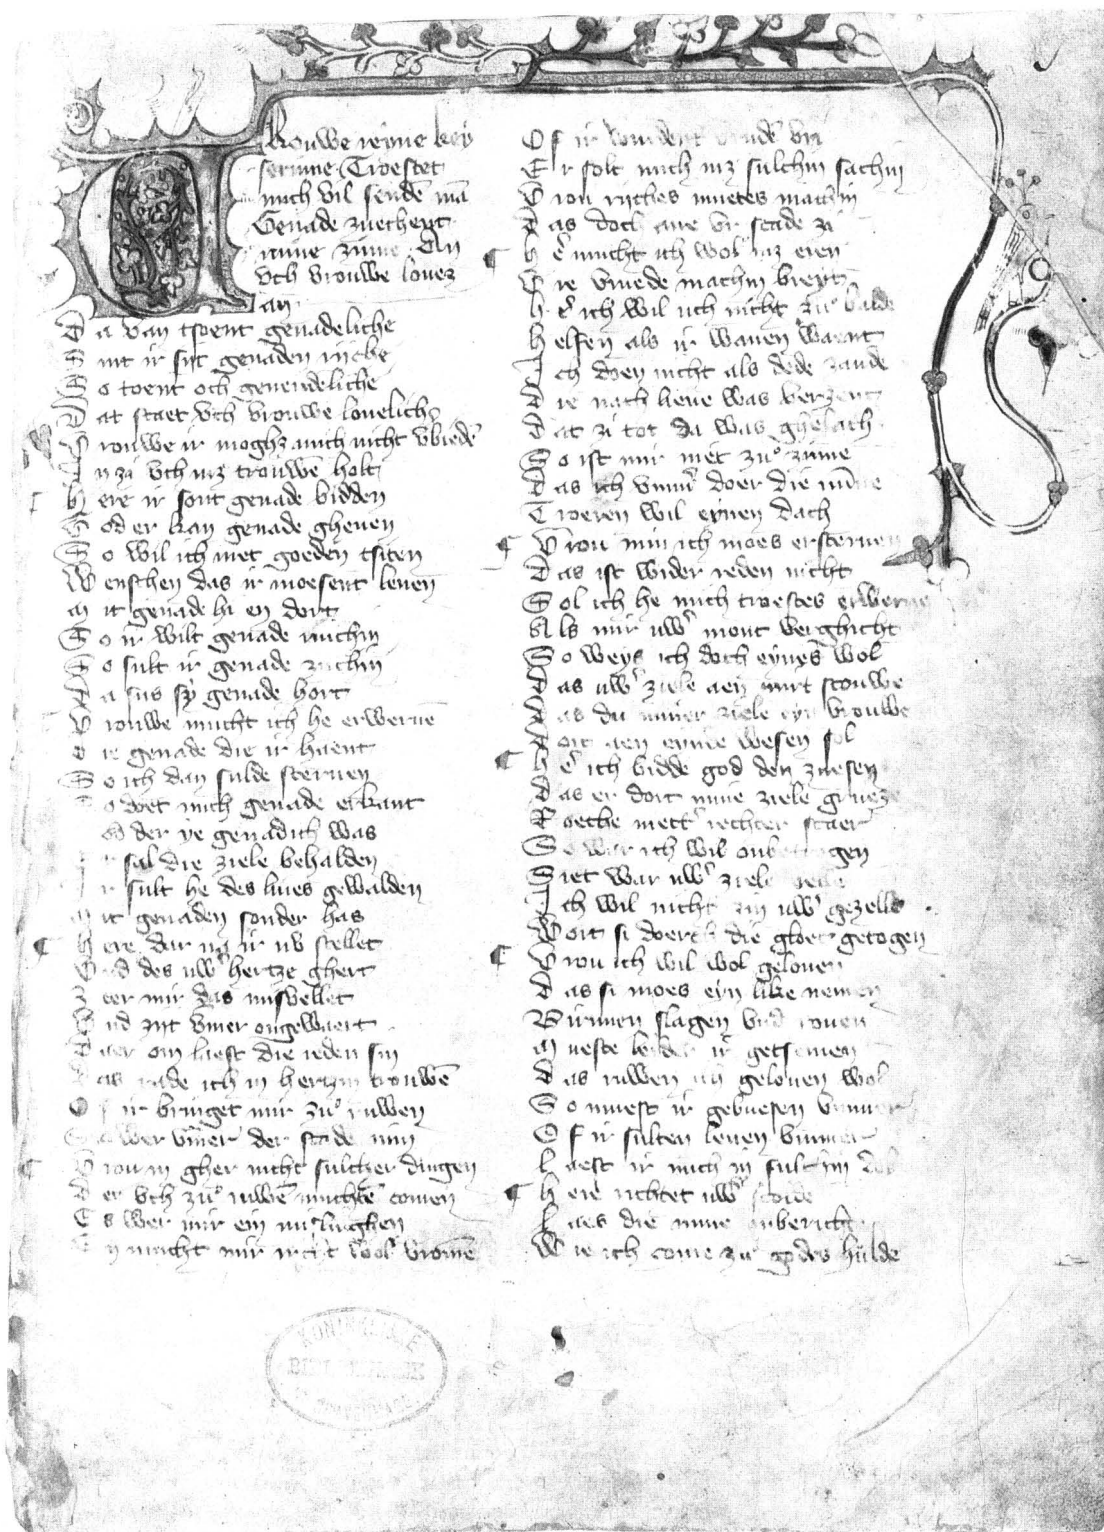 Vrouwe reyne key
serinne Troestet
mich vil sendē mā
Genade zuechent
mine zinne En
vch vrouwe louez
an
Da van tsoent genadeliche
Sint ir sijt genaden rijche
So toent och genendeliche
Dat staet vch vrouwe louelich
Vrouwe ir moghz mich nicht vbiedē
In za vch mz trouwē holt
Here ir sont genade bidden
God er kan genade gheuen
So wil ich met goeden tsiten
Wenschen das ir moesent leuen
Mit genade hi en dort
So ir wilt genade ruichin
So sult ir genade zuchin
Da sus sy genade hort
Vrouwe mucht ich he erweruē
Die genade die ir haent
So ich dan sulde steruen
So wet mich genade erkant
God der ye genadich was
Er sal die ziele behalden
Ir sult he des liues gewalden
Mit genaden sonder has
Here dar na ir uch stellet
Vnd des uwʳ hertze ghert
Zeer mir das misvellet
Vnd zijt vmer ongewaert
Daer om laest die reden sin
Das rade ich in hertzin trouwē
Of ir bringet mir zuͦ ruwen
So wer vmer der scade min
Vrou in gher nicht sulcher dingen
Der vch zuͦ ruwē muchtē comen
Es wer mir ein mislinghen
En macht mir nicht wol vromē
Of ir wurdent
Er solt mich mz sulchin sachin
Vrou rijches muetes machin
Das doch ane vr scade zi
Hʳē mucht ich wol mz eren
Vre vruede machin breyt
Hʳē ich wil uch nicht zuͦ balde
Helfen als ir wanen waent
Ich doen nicht als dede zaude
Die nach lieue was verzent
Dat zi tot da was ghelach
So ist mir niet zuͦ zinne
Das ich vmmʳ doer die minne
Troeren wil eynen dach
Vrou min ich moes ersteruen
Das ist wider reden nicht
Sol ich he mich troestes erwerue
Als mir uwʳ mont verghicht
So weys ich doch eynes wol
Das uwʳ ziele aen mirt scouwe
Das du miner ziele eyn vrouwe
Dort aen eynde wesen sol
Hʳē ich bidde god den zuesen
Das er dort mine ziele grueze
Roeche mettʳ rechter scaer
So war ich wil onbetrogen
Siet war uwʳ ziele
Ich wil nicht zin uwʳ gezelle
Wort si doerch die gloet getogen
Vrou ich wil wol gelouen
Das si moes eyn like nemen
Birnnen slagen vnd rouen
Mueste leider ir getsemen
Das ruwen ich gelouen wol
So muest ir gebuesen vmmer
Of ir sulten leuen vmmer
Laest ir mich in sulchin
Here richtet uwʳ scolde
Laes die mine onbericht
Wie ich come zuͦ godes hulde